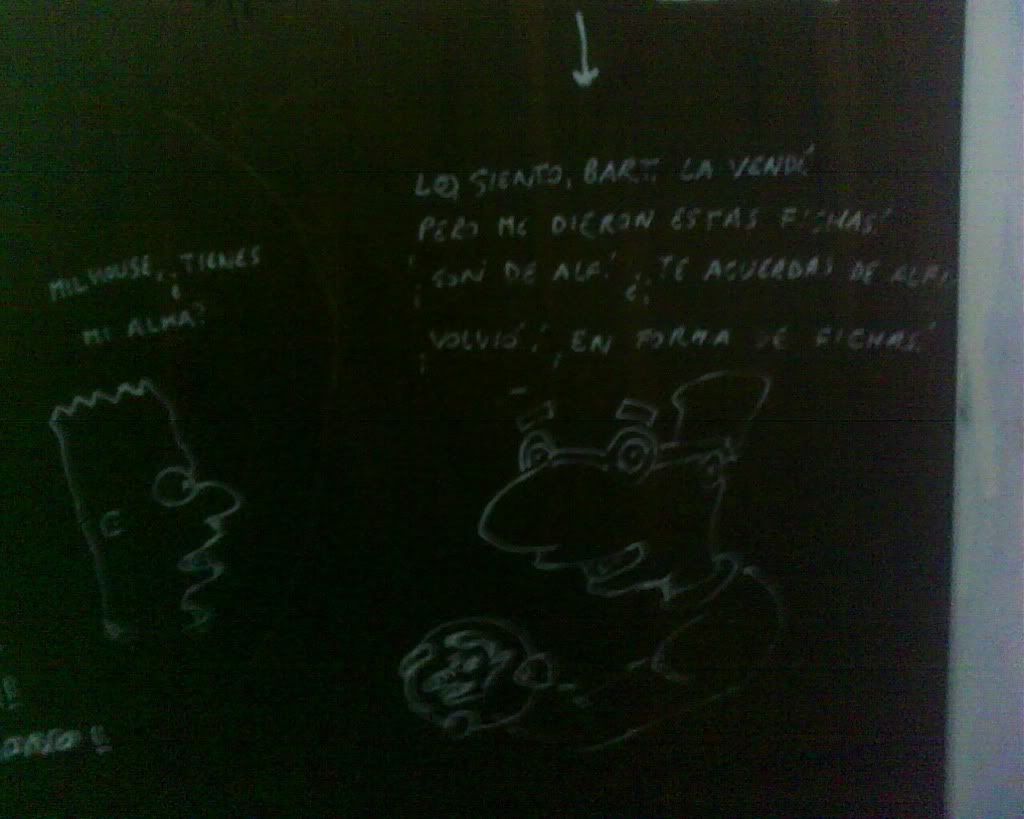 MILHOUSE, ¿TIENES
MI ALMA?
LO SIENTO, BART. LA VENDÍ
PERO ME DIERON ESTAS FICHAS!
¡SON DE ALF! ¿TE ACUERDAS DE ALF?
¡VOLVIÓ! ¡EN FORMA DE FICHAS!